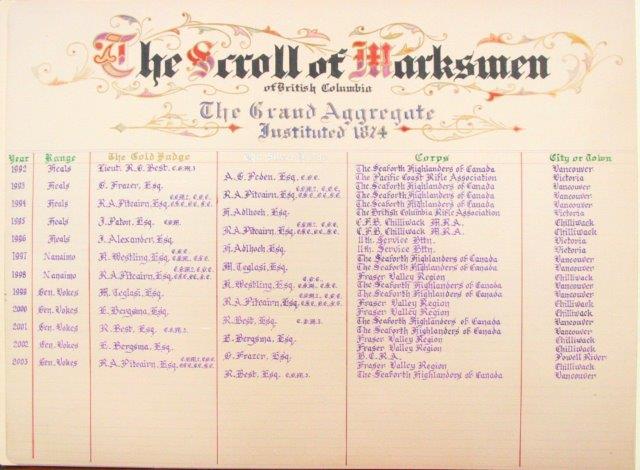 The Scroll of Marksmen
of British Columbia
The Grand Aggregate
Instituted 1874
Year Range The Gold Badge Corps City or Town
1992 Heals Lieut. R.G. Best. The Seaforth Highlanders of Canada Vancouver
A.G. Peden, Esq. The Pacific Coast Rifle Association Victoria
1993 Heals G. Frazer, Esq. The Seaforth Highlanders of Canada Vancouver
R.A. Pitcairn, Esq. The Seaforth Highlanders of Canada Vancouver
1994 Heals R.A. Pitcairn, Esq. The Seaforth Highlanders of Canada Vancouver
H. Adlhoch, Esq. The British Columbia Rifle Association Victoria
1995 Heals J. Paton, Esq. C.F.B. Chilliwack M.R.A. Chilliwack
R.A. Pitcairn, Esq. C.F.B. Chilliwack M.R.A. Chilliwack
1996 Heals I. Alexander, Esq. 11th. Service Bttn. Victoria
H. Adlhoch, Esq. 11th. Service Bttn. Victoria
1997 Nanaimo R. Westling, Esq. The Seaforth Highlanders of Canada Vancouver
M. Teglasi, Esq. The Seaforth Highlanders of Canada Vancouver
1998 Nanaimo R.A. Pitcairn, Esq. Fraser Valley Region Chilliwack
R. Westling, Esq. The Seaforth Highlanders of Canada Vancouver
1999 Gen. Vokes M. Teglasi, Esq. The Seaforth Highlanders of Canada Vancouver
R.A. Pitcairn, Esq. Fraser Valley Region Chilliwack
2000 Gen. Vokes E. Bergsma, Esq. Fraser Valley Region Chilliwack
R. Best, Esq. The Seaforth Highlanders of Canada Vancouver
2001 Gen. Vokes R. Best, Esq. The Seaforth Highlanders of Canada Vancouver
E. Bergsma, Esq. Fraser Valley Region Chilliwack
2002 Gen. Vokes E. Bergsma, Esq. Fraser Valley Region Chilliwack
G. Frazer, Esq. B.C.R.A. Powell River
2003 Gen. Vokes R.A. Pitcairn, Esq. Fraser Valley Region Chilliwack
R. Best, Esq. The Seaforth Highlanders of Canada Vancouver